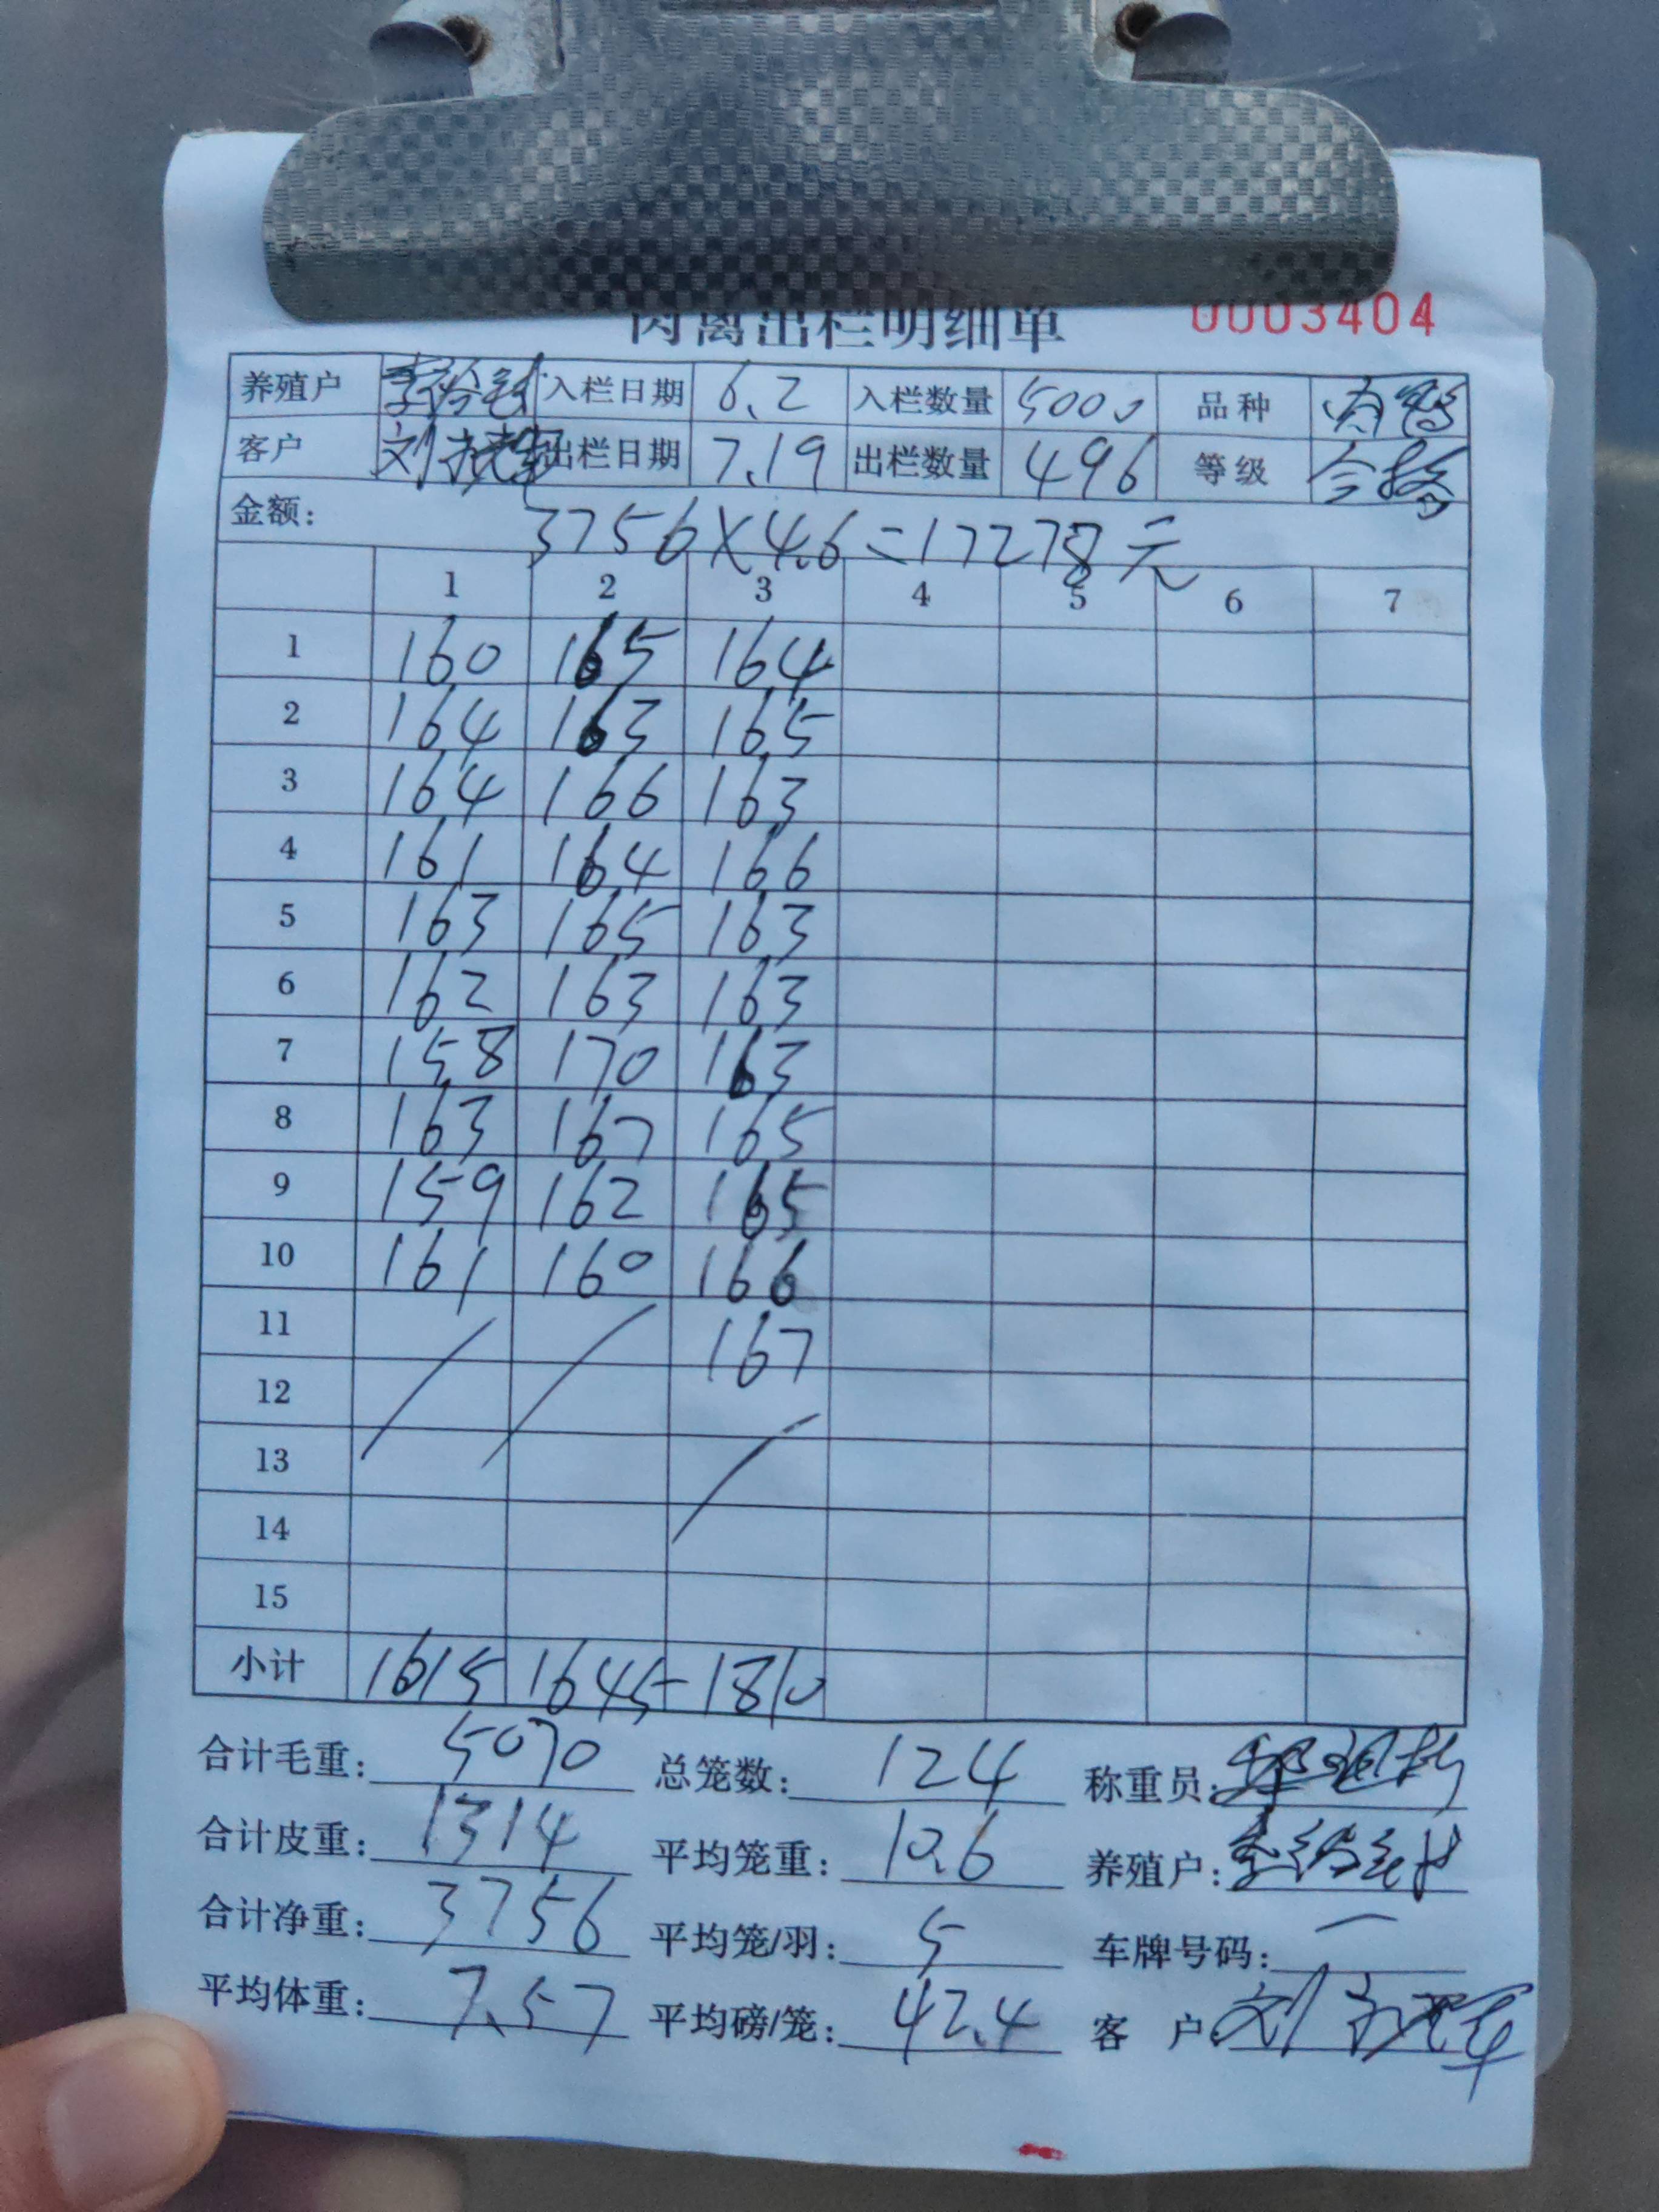 肉禽出栏明细单 0003404
养殖户 入栏日期 6.2 入栏数量 5000 品种 肉鸭
客户 出栏日期 7.19 出栏数量 496 等级 合格
金额: 3756×4.6=17278元
1 2 3 4 5 6 7
1 160 165 164
2 164 163 165
3 164 166 163
4 161 164 166
5 163 165 163
6 162 163 163
7 158 170 163
8 163 167 165
9 159 162 165
10 161 160 166
11 167
12
13
14
15
小计 1615 1645 1810
合计毛重: 5070 总笼数: 124 称重员:
合计皮重: 1314 平均笼重: 10.6 养殖户:
合计净重: 3756 平均笼/羽: 5 车牌号码: 一
平均体重: 7.57 平均磅/笼: 42.4 客户: